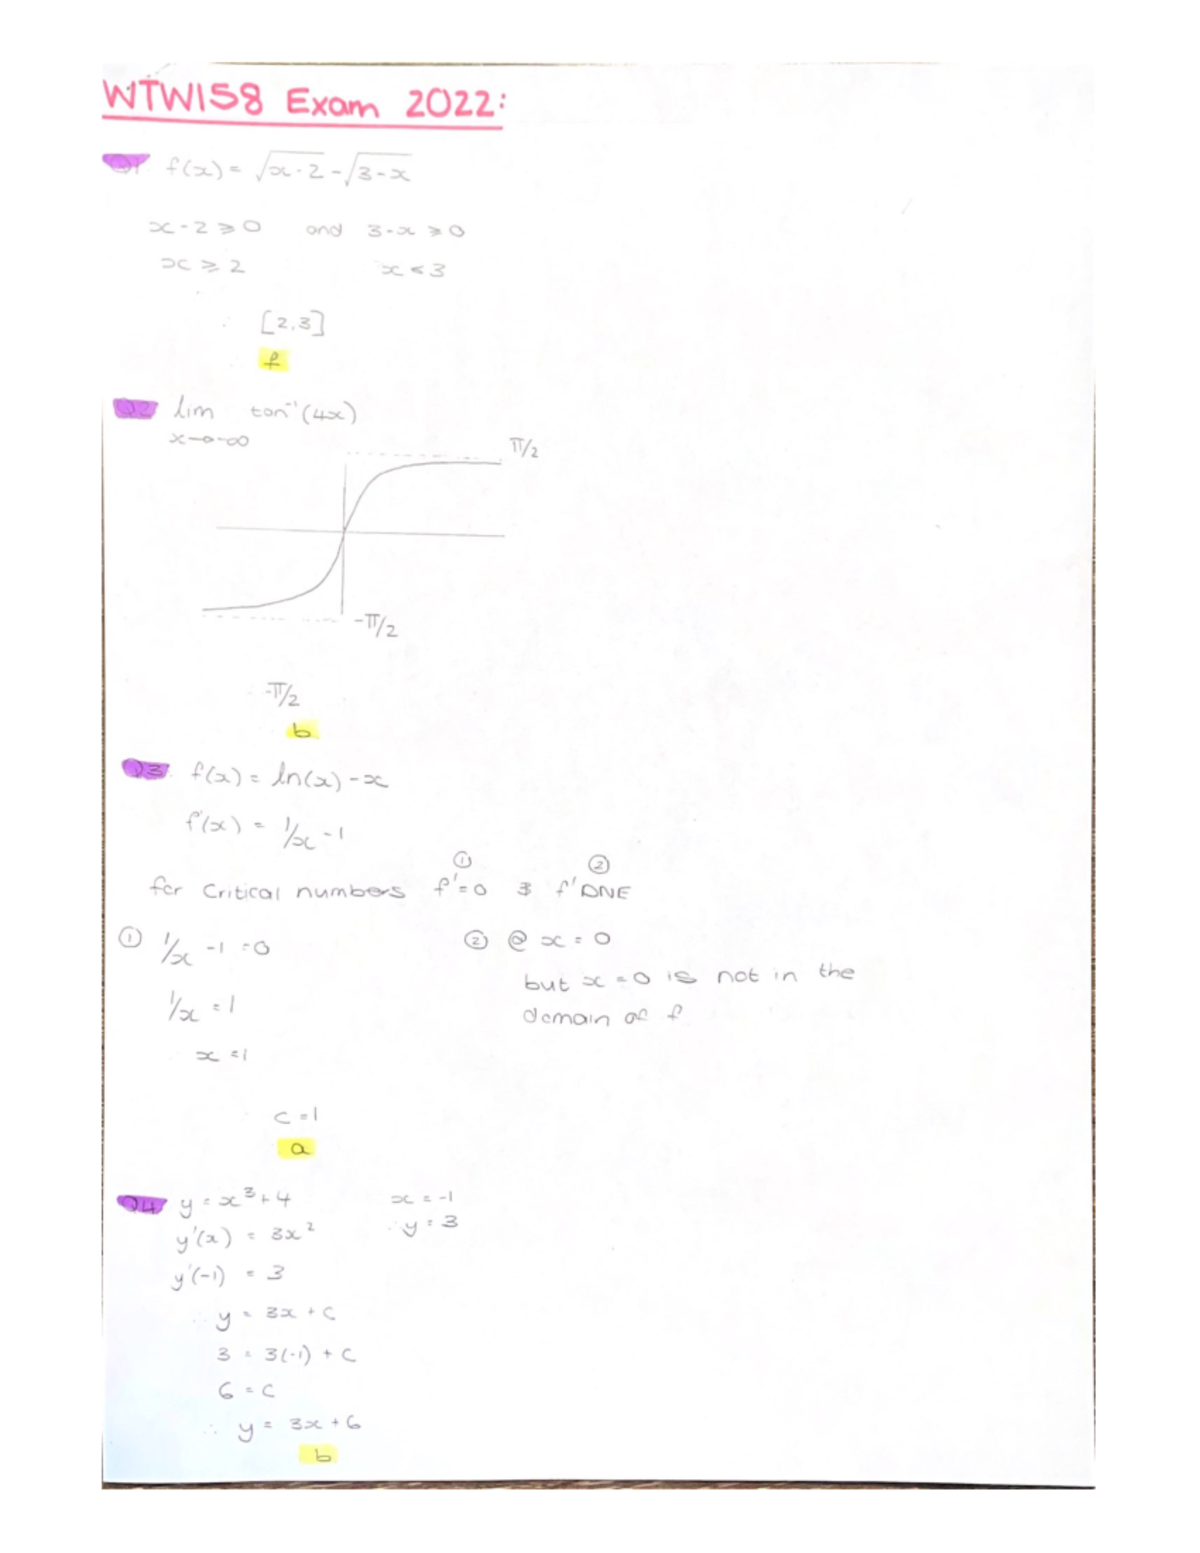 WTW158 Exam 2022:
Q1 f(x) = √x-2 - √3-x
x-2 ⩾ 0 and 3-x ⩾ 0
x ⩾ 2 x ⩽ 3
∴ [2,3]
f
Q2 lim tan⁻¹(4x)
x→-∞
π/2
-π/2
-π/2
b
Q3 f(x) = ln(x) - x
f'(x) = 1/x - 1
① ②
for critical numbers f'=0 & f' DNE
① 1/x - 1 = 0 ② @ x = 0
but x = 0 is not in the
1/x = 1
domain of f
x = 1
c = 1
a
Q4 y = x³ + 4 x = -1
y'(x) = 3x² ∴ y = 3
y'(-1) = 3
∴ y = 3x + c
3 = 3(-1) + c
6 = c
∴ y = 3x + 6
b